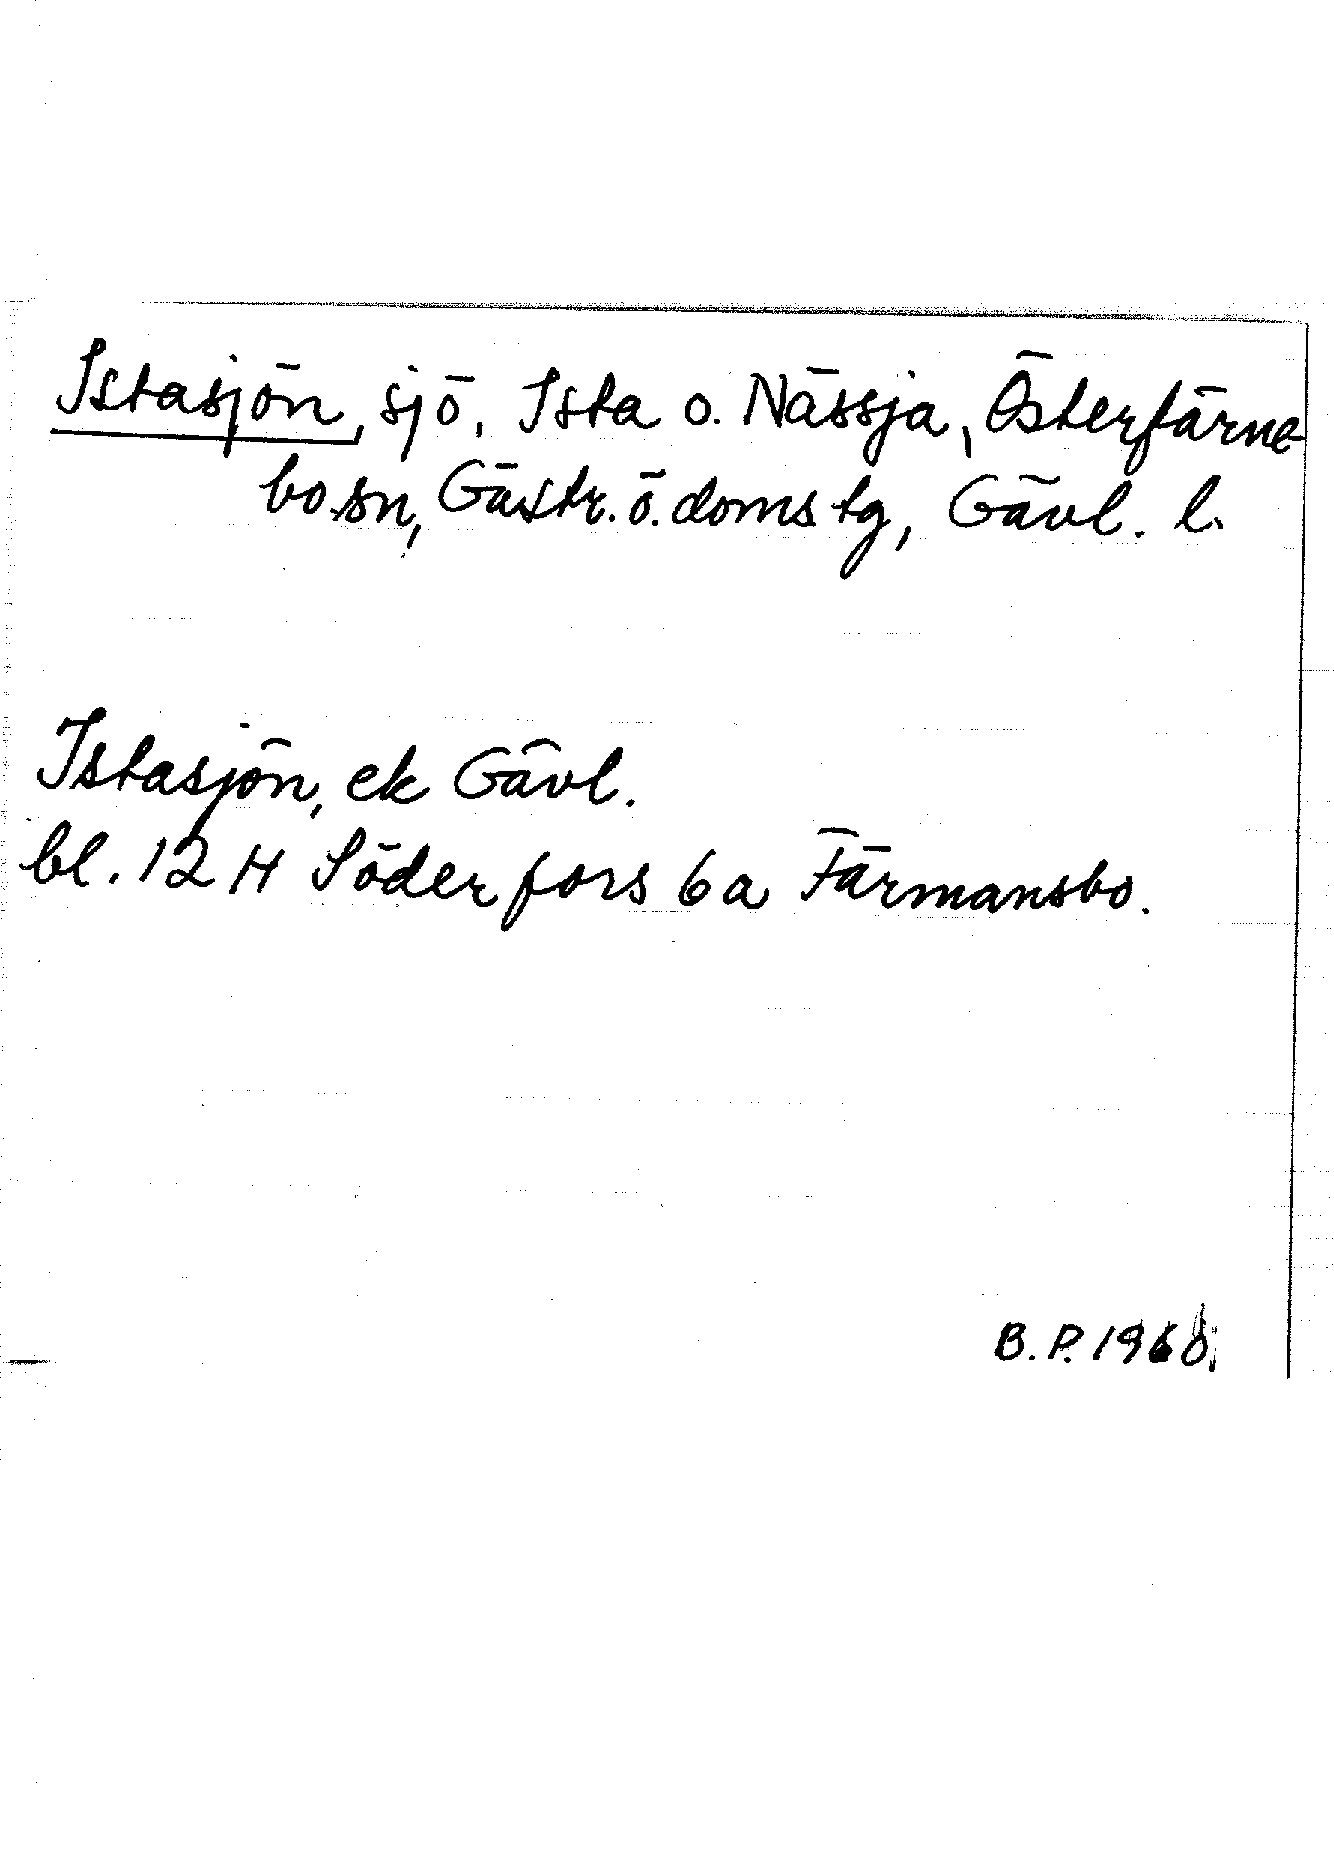 Istasjön, sjö, Ista o. Nässja, Österfärne-
bo sn, Gästr. ö. doms tg, Gävl. l.
Istasjön, ek Gävl.
bl. 12 H Söderfors 6 a Färmansbo.
B. P. 1968